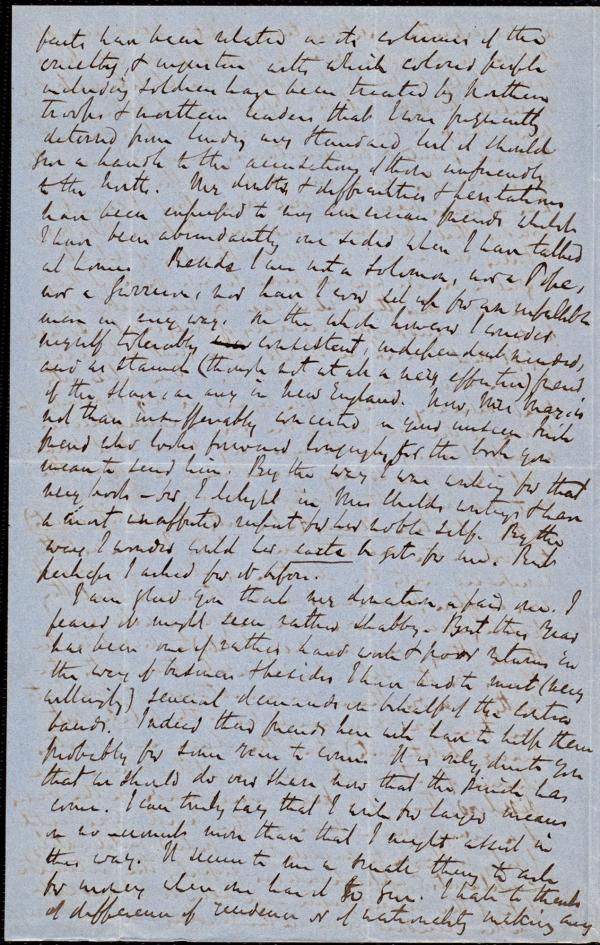 facts have been related in its columns of the
cruelty & injustice with which colored people
including soldiers have been treated by Northern
troops & northern leaders that I was frequently
deterred from lending my Standard lest it should
give a handle to the accusations of those unfriendly
to the North. My doubts & difficulties & hesitations
have been expressed to my American friends whilst
I have been abundantly one sided when I have talked
at home. Beside I am not a Solomon, nor a Pope,
nor a Garrison, nor have I ever set up for an infallible
man in any way. On the whole however I consider
myself tolerably consistent, independent minded,
and as staunch (though not at all a very effective) friend
of the slave as any in New England. Now, Mrs May, is
not that insufferably conceited in your unseen Irish
friend who looks forward longingly for the book you
mean to send him. By the way I was wishing for that
very book – for I delight in Mrs Childs writings & have
a most unaffected respect for her noble self. By the
way I wonder could her carte be got for me. But
perhaps I asked for it before.
I am glad you think my donation a fair one. I
feared it might seem rather shabby – But this year
has been one of rather hard work & poor returns in
the way of business & besides I have had to meet (very
willingly) several demands on behalf of the contra
bands. Indeed their friends here will have to help them
probably for some years to come. It is only due to you
that we should do our share now that the pinch has
come. I can truly say that I wish for larger means
on no account more than that I might assist in
this way. It seems to me a small thing to ask
for money when one has it to give. I hate to think
of difference of residence or of nationality making any